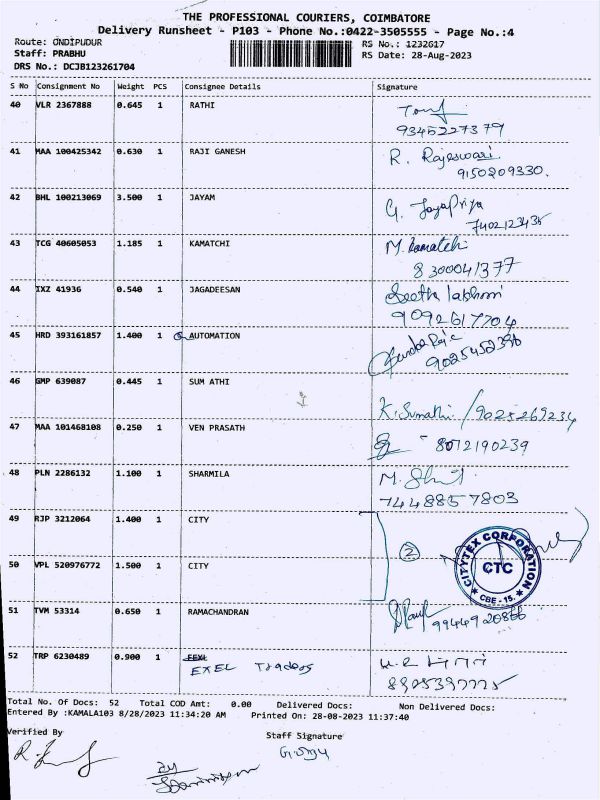 THE PROFESSIONAL COURIERS, COIMBATORE
Delivery Runsheet - P103 - Phone No.:0422-3505555 - Page No.:4
Route: ONDIPUDUR RS No.: 1232617
Staff: PRABHU RS Date: 28-Aug-2023
DRS No.: DCJB123261704
S No Consignment No Weight PCS Consignee Details Signature
40 VLR 2367888 0.645 1 RATHI
9345227379
41 MAA 100425342 0.630 1 RAJI GANESH R. Rajeswari
9150209330.
42 BHL 100213069 3.500 1 JAYAM G. JayaPriya
7402123435
43 TCG 40605053 1.185 1 KAMATCHI M. Kamatchi
8300041377
44 IXZ 41936 0.540 1 JAGADEESAN Seetha lakshmi
9092617704
45 HRD 393161857 1.400 1 AUTOMATION
9025452396
46 GMP 639087 0.445 1 SUM ATHI
K. Sumathi / 9025269234
47 MAA 101468108 0.250 1 VEN PRASATH
8012190239
48 PLN 2286132 1.100 1 SHARMILA M.
7448857803
49 RJP 3212064 1.400 1 CITY
2
CITYTEX CORPORATION
CTC
* CBE - 15. *
50 VPL 520976772 1.500 1 CITY
51 TVM 53314 0.650 1 RAMACHANDRAN
9944920866
52 TRP 6230489 0.900 1
EXEL Traders
8925397775
Total No. Of Docs: 52 Total COD Amt: 0.00 Delivered Docs: Non Delivered Docs:
Entered By :KAMALA103 8/28/2023 11:34:20 AM Printed On: 28-08-2023 11:37:40
Verified By Staff Signature